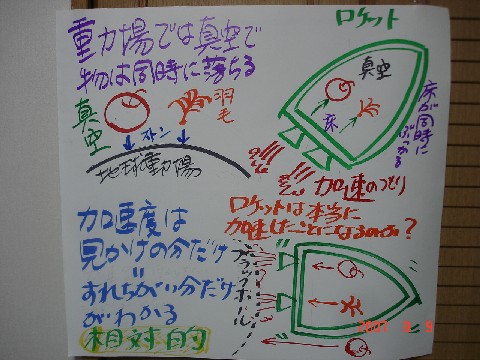 重力場では真空で
物は同時に落ちる
真空
羽毛
ストン
地球重力場
加速度は
見かけの分だけ
すれちがい分だけ
がわかる
相対的
ロケット
真空
床
床が同時に
ぶつかる
加速のつもり
ロケットは本当に
加速したことになるのか?
ブラックホール
2007 9 9